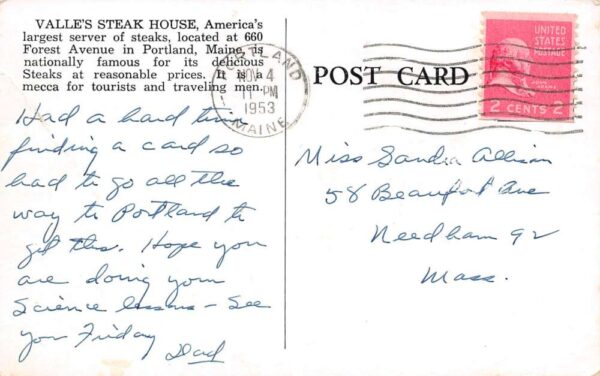 VALLE'S STEAK HOUSE, America's
largest server of steaks, located at 660
Forest Avenue in Portland, Maine, is
nationally famous for its delicious
Steaks at reasonable prices. It is a
mecca for tourists and traveling men.
Had a hard time
finding a card so
had to go all the
way to Portland to
get this. Hope you
are doing your
Science lessons – See
you Friday
Dad
PORTLAND
NOV 4
11 PM
1953
MAINE
POST CARD
UNITED
STATES
POSTAGE
2 CENTS 2
Miss Sandra Allison
58 Beaufort Ave
Needham 92
Mass.